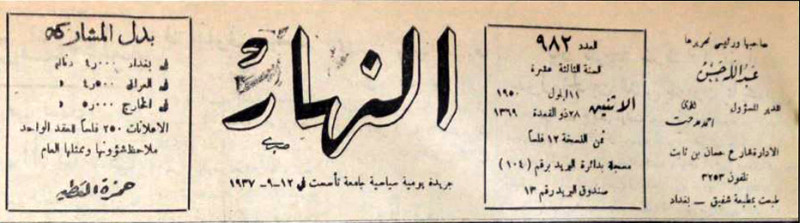 صاحبها ورئيس تحريرها
عبدالله حسن
المدير المسؤول
المحامي
احمد مدحت
الادارة شارع حسان بن ثابت
تلفون ٣٢٥٣
طبعت بمطبعة شفيق - بغداد
العدد ٩٨٢
السنة الثالثة عشرة
الاثنين
١١ ايلول ١٩٥٠
٢٨ ذو القعدة ١٣٦٩
ثمن النسخة ١٢ فلسا
مسجلة بدائرة البريد برقم (١٠٤)
صندوق البريد رقم ١٣
النهار
جريدة يومية سياسية جامعة تأسست في ١٢-٩-١٩٣٧
بدل المشاركة
في بغداد ٤٫٠٠٠ دنانير
في العراق ٤٫٥٠٠ »
في الخارج ٥٫٠٠٠ »
الاعلانات ٢٥٠ فلساً للعقد الواحد
ملاحظ شؤونها وممثلها العام
حمزة